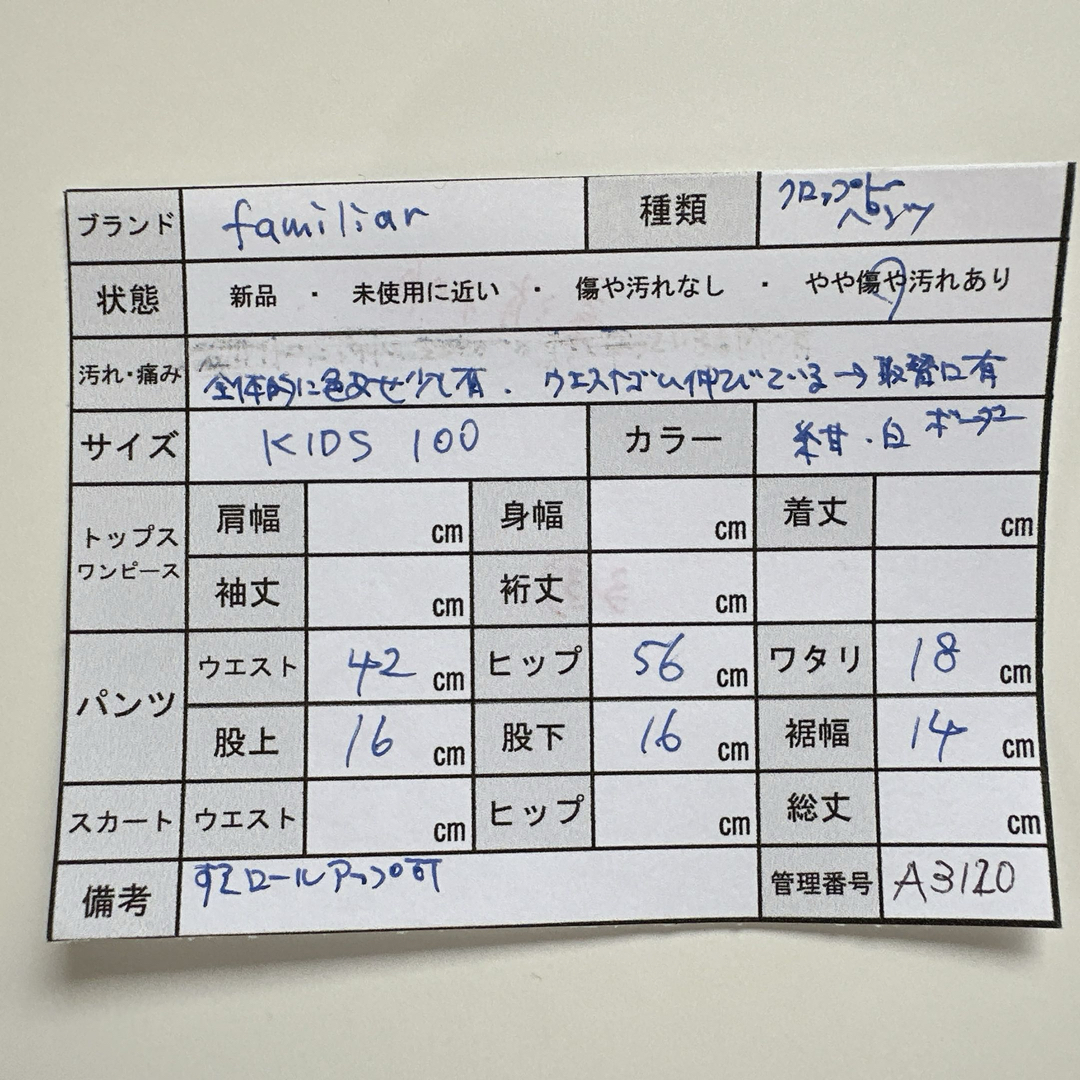 ブランド familiar 種類 クロップド
パンツ
状態 新品 ・ 未使用に近い ・ 傷や汚れなし ・ やや傷や汚れあり
汚れ・痛み 全体的に色あせ少し有. ウエストゴム伸びている→取替口有
サイズ KIDS 100 カラー 紺・白 ボーダー
トップス
ワンピース
肩幅 cm 身幅 cm 着丈 cm
袖丈 cm 裄丈 cm
パンツ
ウエスト 42 cm ヒップ 56 cm ワタリ 18 cm
股上 16 cm 股下 16 cm 裾幅 14 cm
スカート ウエスト cm ヒップ cm 総丈 cm
備考 すそロールアップ可 管理番号 A3120